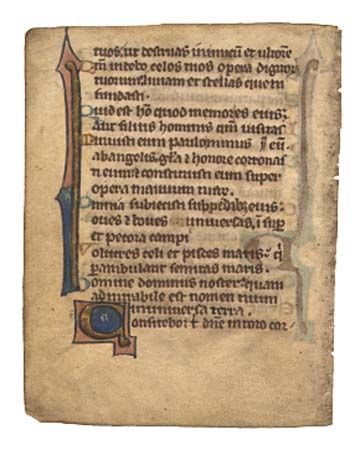 tuos, ut destruas inimicū et ultorē
Qm̄ videbo celos tuos opera digitor
tuorum lunam et stellas que tu
fundasti.
Quid est hō quod memores eius:
Aut filius hominis qm̄ visitas
Minuisti eum paulominus eū:
ab angelis, gl̄a & honore coronas
ti eum & constituisti eum super
opera manuum tuar.
Omnia subiecisti sub pedibȝ eius:
oves & boves universas, ī sup
et pecora campi
Volucres celi et pisces maris: q̄
perambulant semitas maris.
Domine dominus noster: quam
admirabile est nomen tuum
in universa terra.
Confitebor t̄ dn̄e in toto cor/